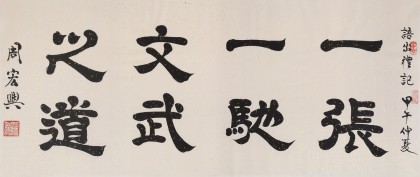 語出禮記 甲午仲夏
一張
一馳
文武
之道
周宏興